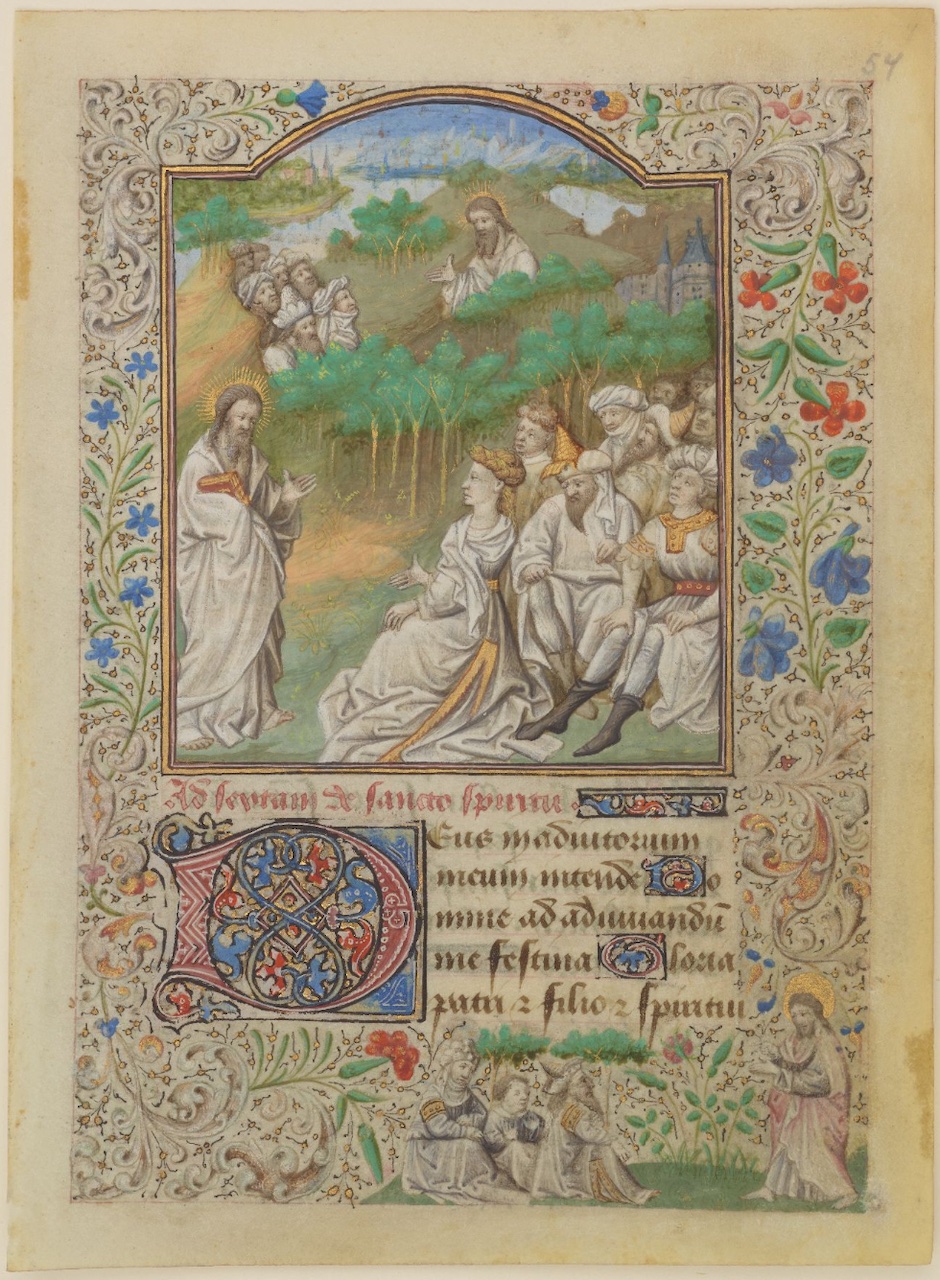 54
Ad sextam de sancto spiritu
Deus in adiutorium
meum intende Do
mine ad adiuuandū
me festina Gloria
patri ⁊ filio ⁊ spiritui